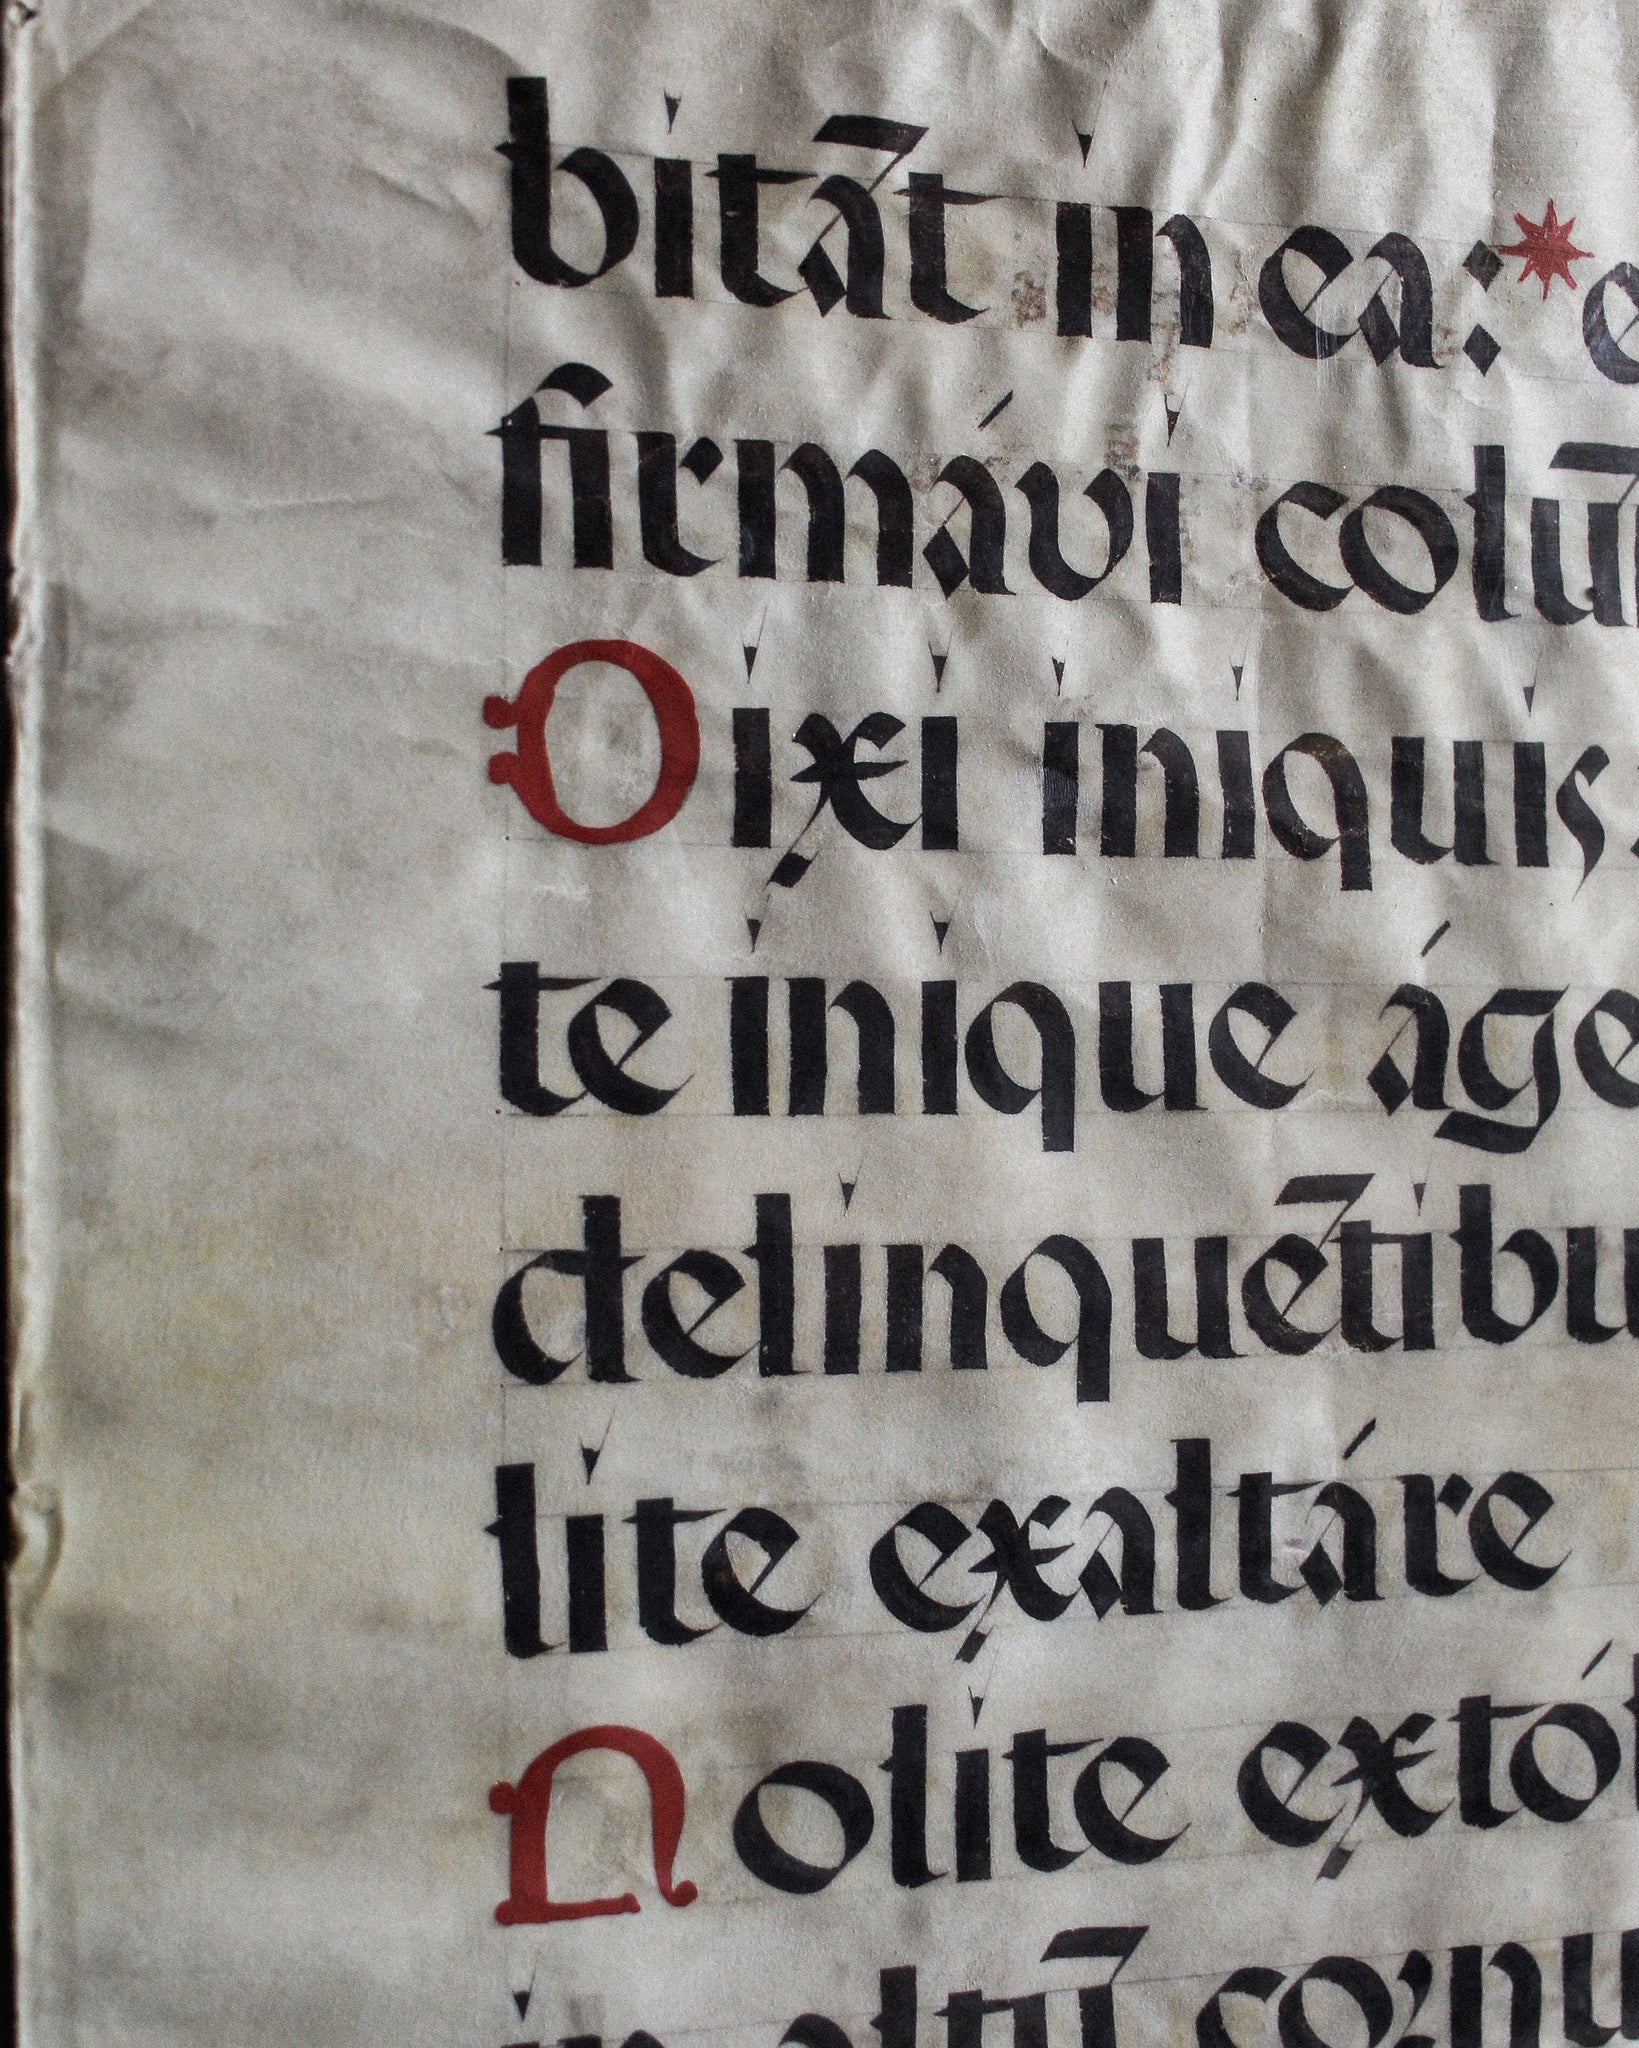 bitāt in ea:
firmávi colū
Dixi iniquis
te inique áge
delinquētibu
lite exaltáre
Nolite extól
in altū cornu